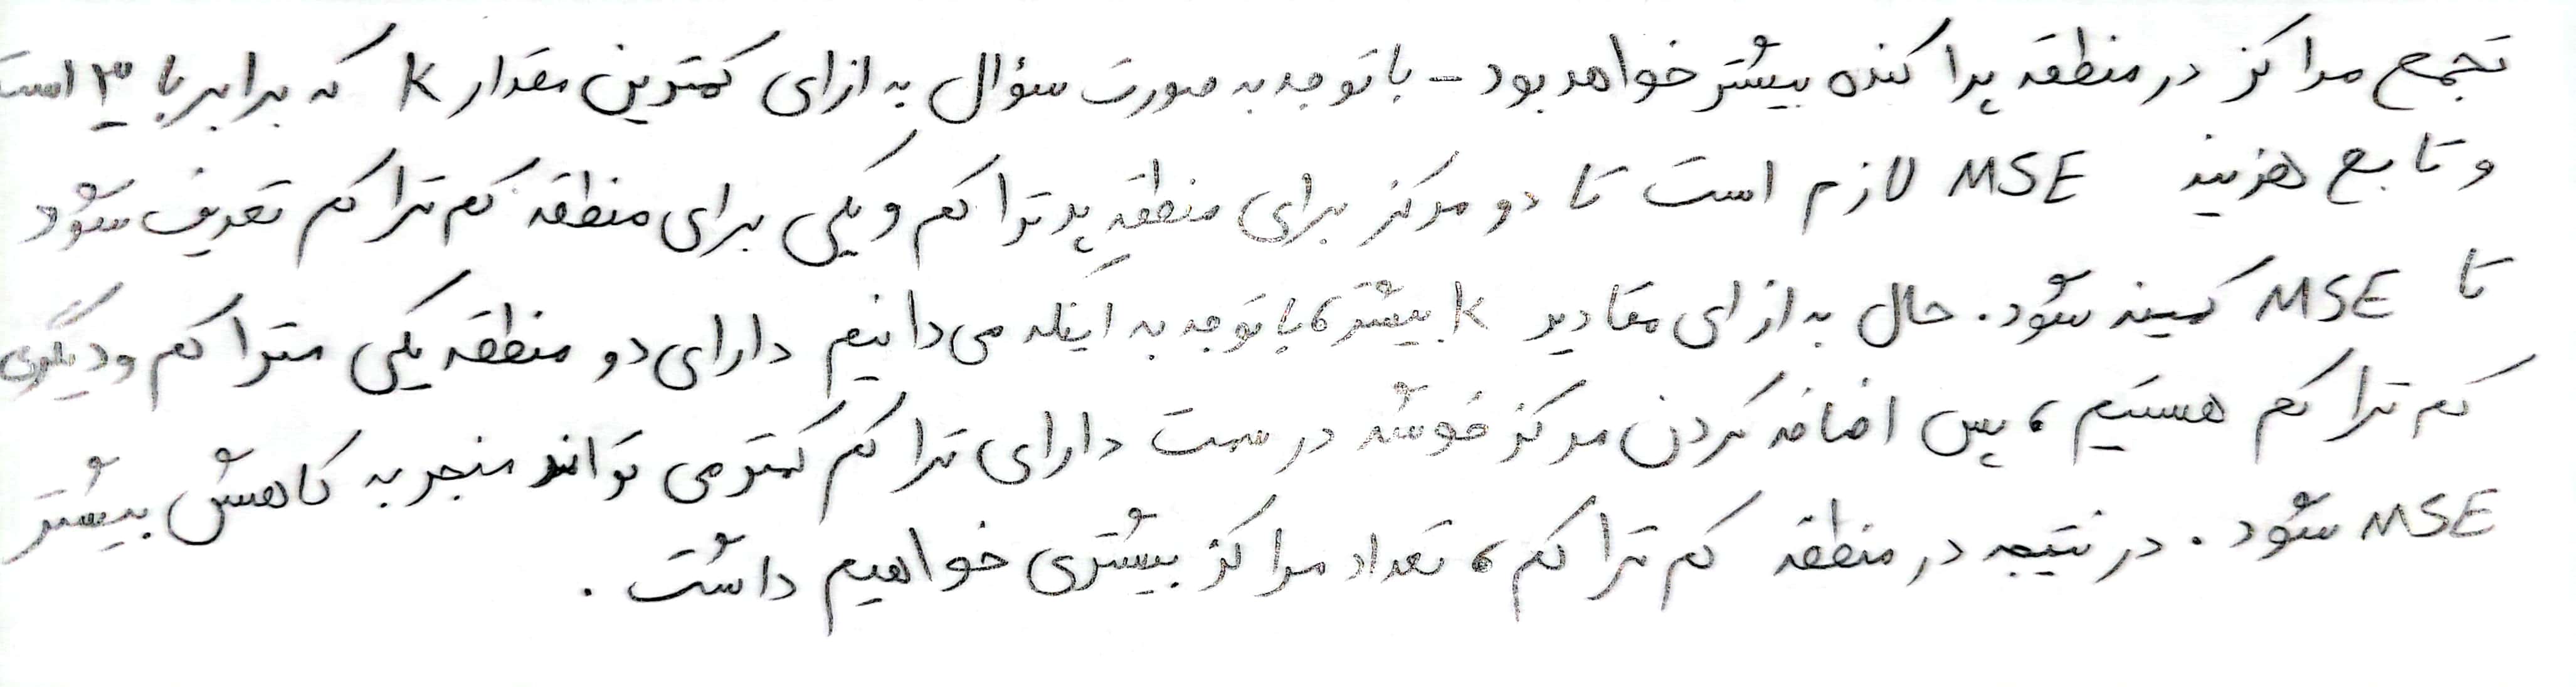 تجمع مراکز در منطقه پراکنده بیشتر خواهد بود - با توجه به صورت سؤال به ازای کمترین مقدار k که برابر با ۳ است
و تابع هزینه MSE لازم است تا دو مرکز برای منطقه پر تراکم و یکی برای منطقه کم تراکم تعریف شود
تا MSE کمینه شود. حال به ازای مقادیر k بیشتر، با توجه به اینکه می‌دانیم دارای دو منطقه یکی متراکم و دیگری
کم تراکم هستیم، پس اضافه کردن مرکز خوشه در سمت دارای تراکم کمتر می تواند منجر به کاهش بیشتر
MSE شود. در نتیجه در منطقه کم تراکم، تعداد مراکز بیشتری خواهیم داشت.